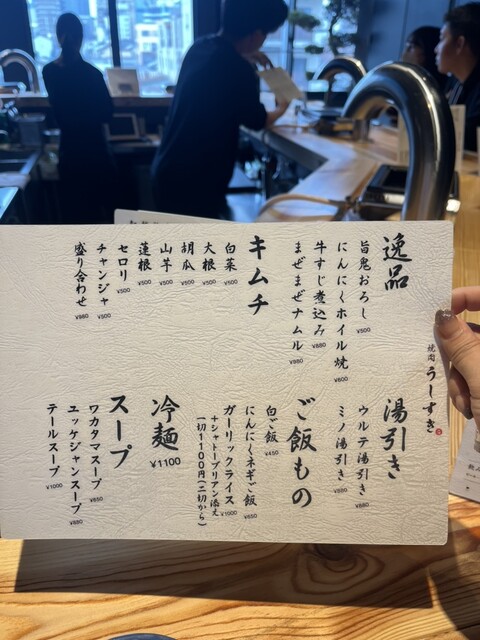 逸品
旨鬼おろし ¥500
にんにくホイル焼 ¥600
牛すじ煮込み ¥880
まぜまぜナムル ¥980
キムチ
白菜 ¥500
大根 ¥500
胡瓜 ¥500
山芋 ¥500
蓮根 ¥500
セロリ ¥500
チャンジャ ¥500
盛り合わせ ¥980
焼肉 うしすき
湯引き
ウルテ湯引き ¥880
ミノ湯引き ¥880
ご飯もの
白ご飯 ¥450
にんにくネギご飯 ¥650
ガーリックライス ¥1000
+シャトーブリアン添え
(一切1100円(二切から)
冷麺 ¥1100
スープ
ワカタマスープ ¥850
ユッケジャンスープ ¥880
テールスープ ¥1000